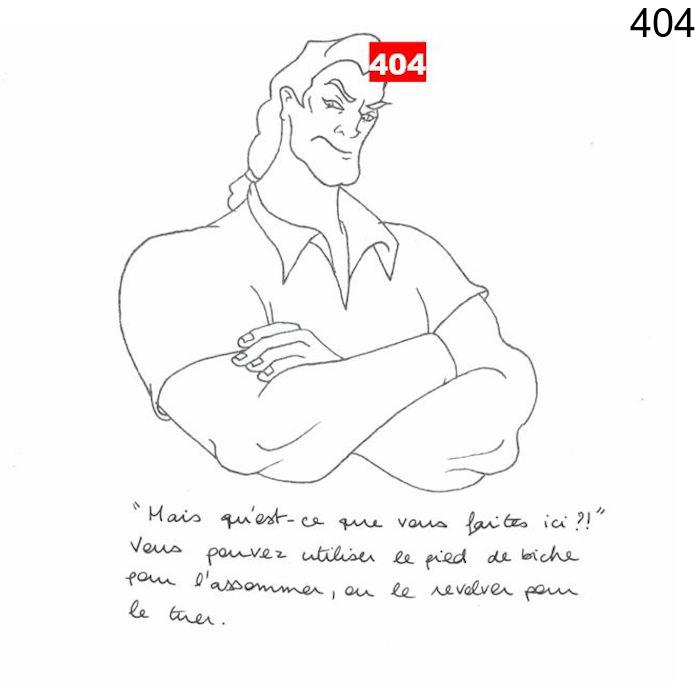 404
404
"Mais qu'est-ce que vous faites ici ?!"
Vous pouvez utiliser le pied de biche
pour l'assommer, ou le revolver pour
le tuer.